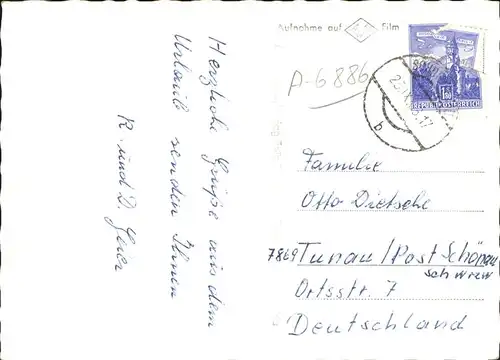 Aufnahme auf Film
A-6886
Herzliche Grüße aus dem
Urlaub senden Ihnen
R. und D. Geier
REPUBLIK ÖSTERREICH
Familie
Otto Dietsche
7869 Tunau/Post Schönau
Schwrzw
Ortsstr. 7
Deutschland